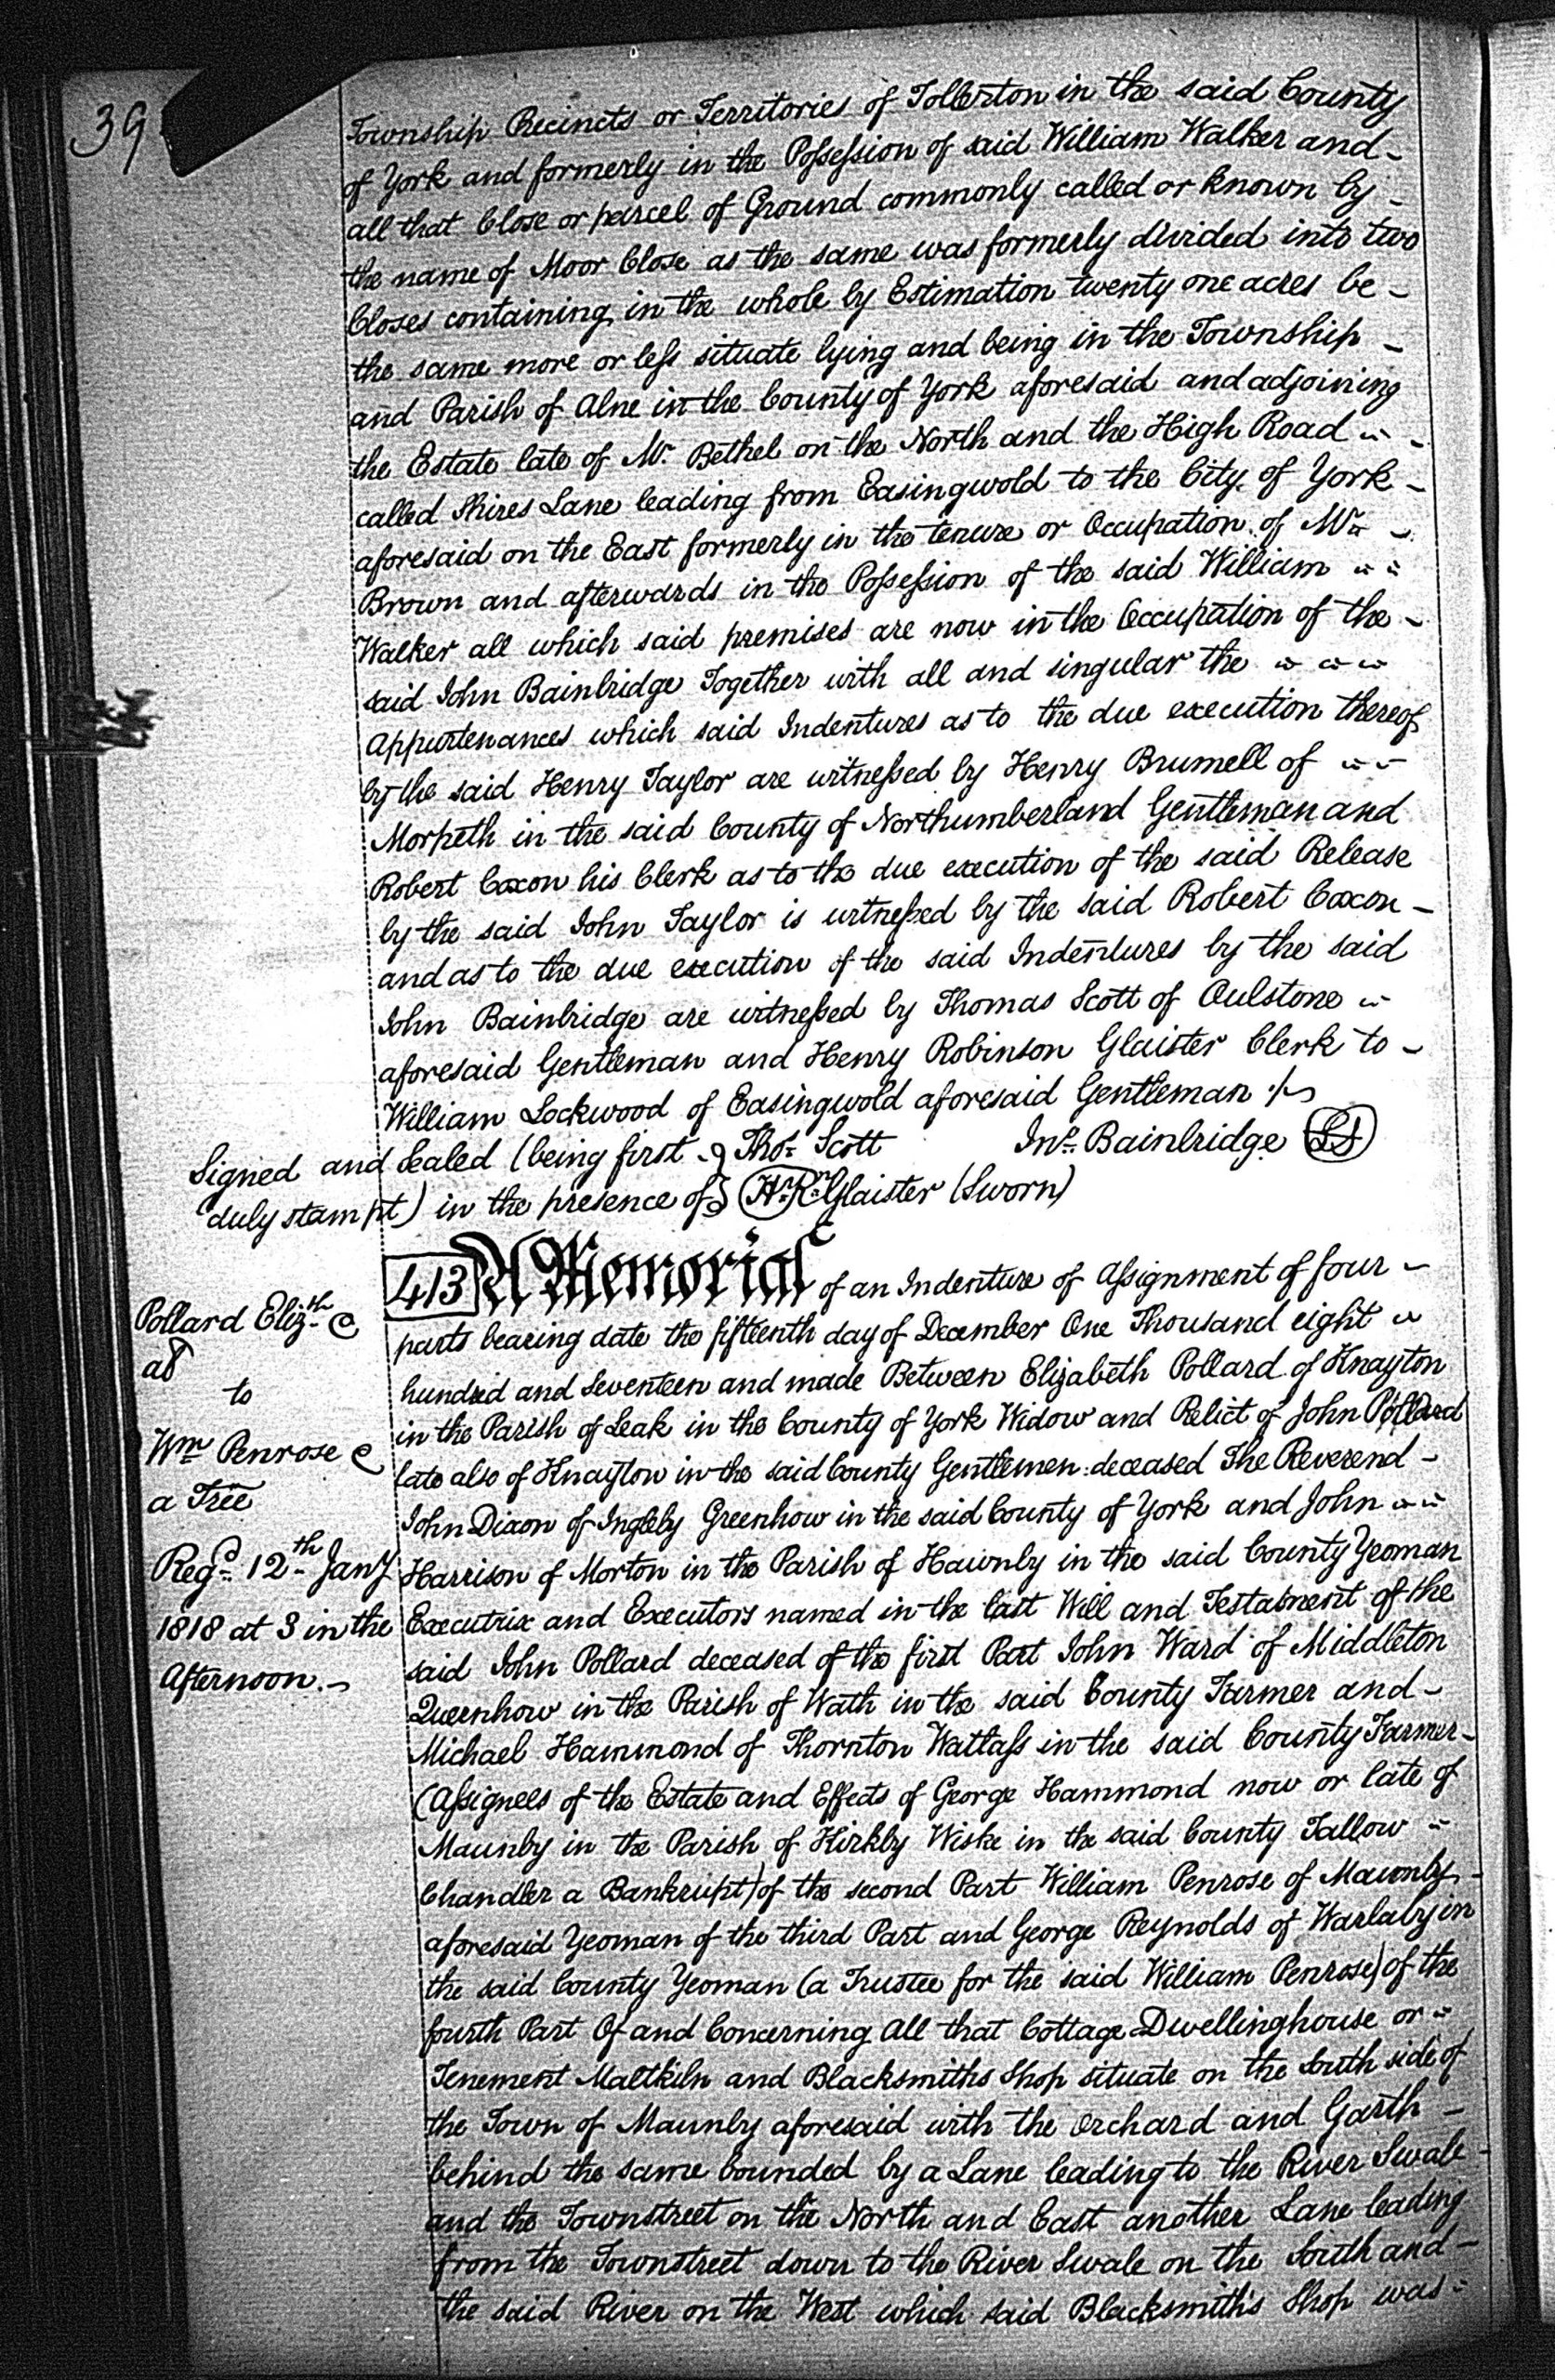 39
Township Precincts or Territories of Tollerton in the said County
of York and formerly in the Possession of said William Walker and -
all that Close or parcel of Ground commonly called or known by -
the name of Moor Close as the same was formerly divided into two
Closes containing in the whole by Estimation twenty one acres be -
the same more or less situate lying and being in the Township -
and Parish of Alne in the County of York aforesaid and adjoining
the Estate late of Mr. Bethel on the North and the High Road
called Shires Lane leading from Easingwold to the City of York -
aforesaid on the East formerly in the tenure or Occupation of Mr. -
Brown and afterwards in the Possession of the said William
Walker all which said premises are now in the Occupation of the -
said John Bainbridge Together with all and singular the
Appurtenances which said Indentures as to the due execution thereof
by the said Henry Taylor are witnessed by Henry Brumell of
Morpeth in the said County of Northumberland Gentleman and
Robert Coxon his Clerk as to the due execution of the said Release
by the said John Taylor is witnessed by the said Robert Coxon -
and as to the due execution of the said Indentures by the said
John Bainbridge are witnessed by Thomas Scott of Oulstone
aforesaid Gentleman and Henry Robinson Glaister Clerk to -
William Lockwood of Easingwold aforesaid Gentleman
Signed and Sealed (being first } Thos. Scott Jno. Bainbridge LS
duly stampt) in the presence of } Hy. Rn. Glaister (Sworn)
413 A Memorial of an Indenture of Assignment of four -
parts bearing date the fifteenth day of December One Thousand eight
hundred and Seventeen and made Between Elizabeth Pollard of Knayton
in the Parish of Leak in the County of York Widow and Relict of John Pollard
late also of Knayton in the said County Gentlemen deceased The Reverend -
John Dixon of Ingleby Greenhow in the said County of York and John
Harrison of Morton in the Parish of Hawnby in the said County Yeoman
Executrix and Executors named in the last Will and Testament of the
said John Pollard deceased of the first Part John Ward of Middleton
Queenhow in the Parish of Wath in the said County Farmer and -
Michael Hammond of Thornton Wattass in the said County Farmer -
(Assignees of the Estate and Effects of George Hammond now or late of
Maunby in the Parish of Kirkby Wiske in the said County Tallow
Chandler a Bankrupt) of the second Part William Penrose of Maunby -
aforesaid Yeoman of the third Part and George Reynolds of Warlaby in
the said County Yeoman (a Trustee for the said William Penrose) of the
fourth Part Of and Concerning All that Cottage Dwellinghouse or
Tenement Maltkiln and Blacksmiths Shop situate on the South side of
the Town of Maunby aforesaid with the Orchard and Garth -
behind the same bounded by a Lane leading to the River Swale -
and the Townstreet on the North and East another Lane leading
from the Townstreet down to the River Swale on the South and -
the said River on the West which said Blacksmith's Shop was
Pollard Elizth. &
al
to
Wm. Penrose &
a Tree
Regd. 12th. Jany
1818 at 3 in the
Afternoon. -